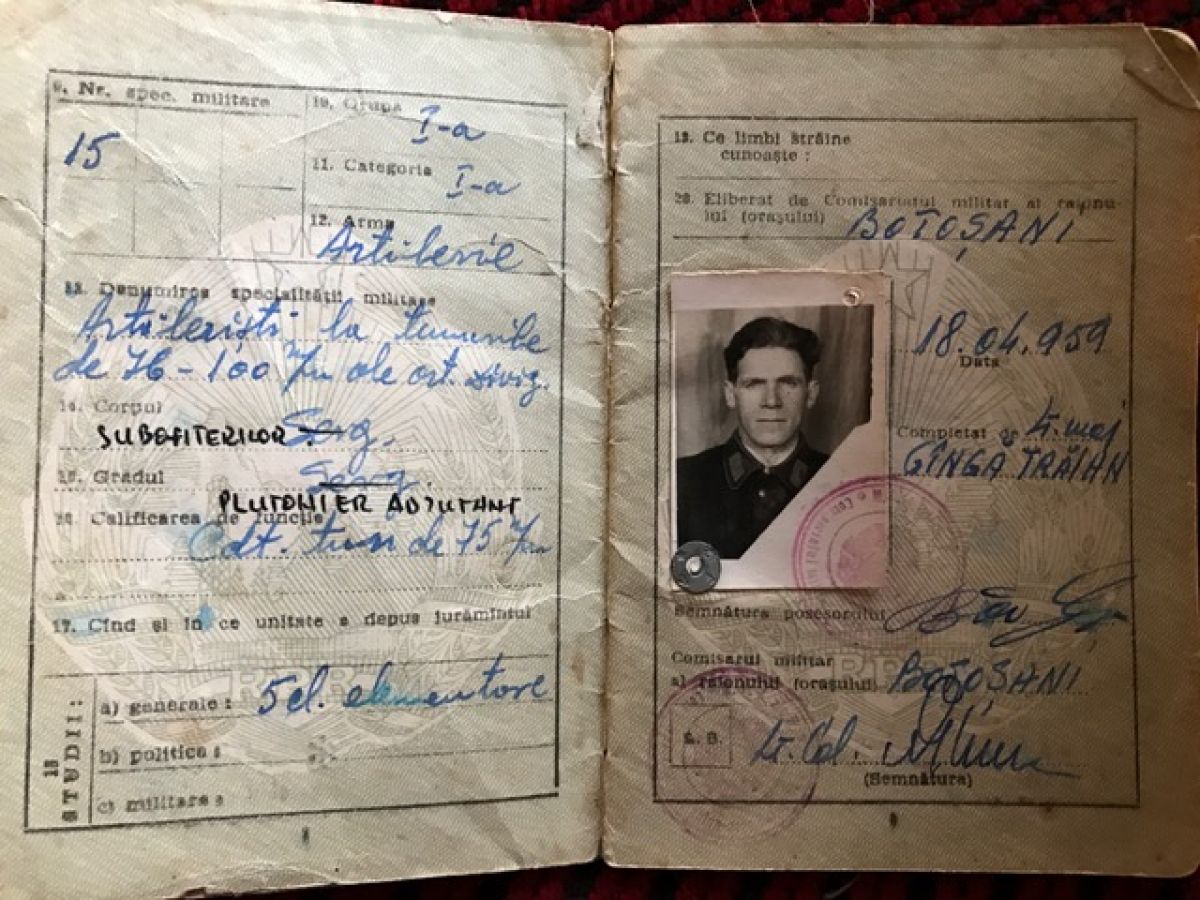 9. Nr. spec. militare
15
10. Grupa I-a
11. Categoria I-a
12. Arma
Artilerie
13. Denumirea specialității militare
Artileriști la tunurile
de 76-100 m/m ale art. diviz.
14. Corpul
SUBOFITERILOR Serg.
15. Gradul Serg.
PLUTONIER ADJUTANT
16. Calificarea de funcție
Cdt. tun de 75 m/m
17. Cînd și în ce unitate a depus jurămîntul
18
STUDII:
a) generale: 5 cl. elementare
b) politice:
c) militare:
RPR
19. Ce limbi străine
cunoaște:
20. Eliberat de Comisariatul militar al raionu-
lui (orașului) BOTOȘANI
18.04.959
Data
Completat de Lt. maj
GÎNGA TRAIAN
Semnătura posesorului
Comisarul militar
al raionului (orașului) BOTOȘANI
RPR
L. S.
Lt. Col.
(Semnătura)